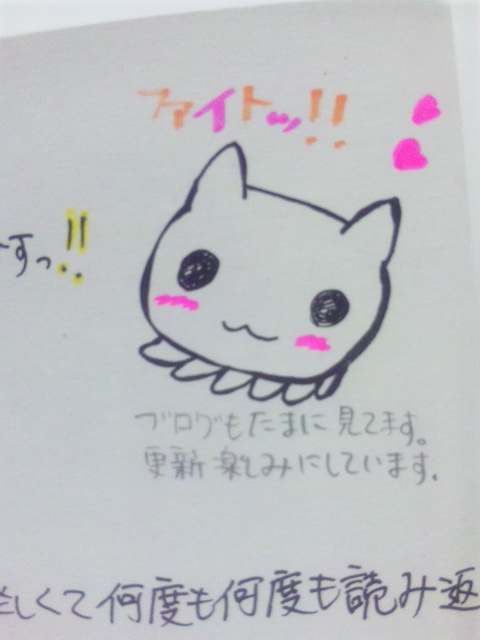 ファイトッ!!
すっ!!
ブログもたまに見てます。
更新楽しみにしています.
しくて何度も何度も読み返